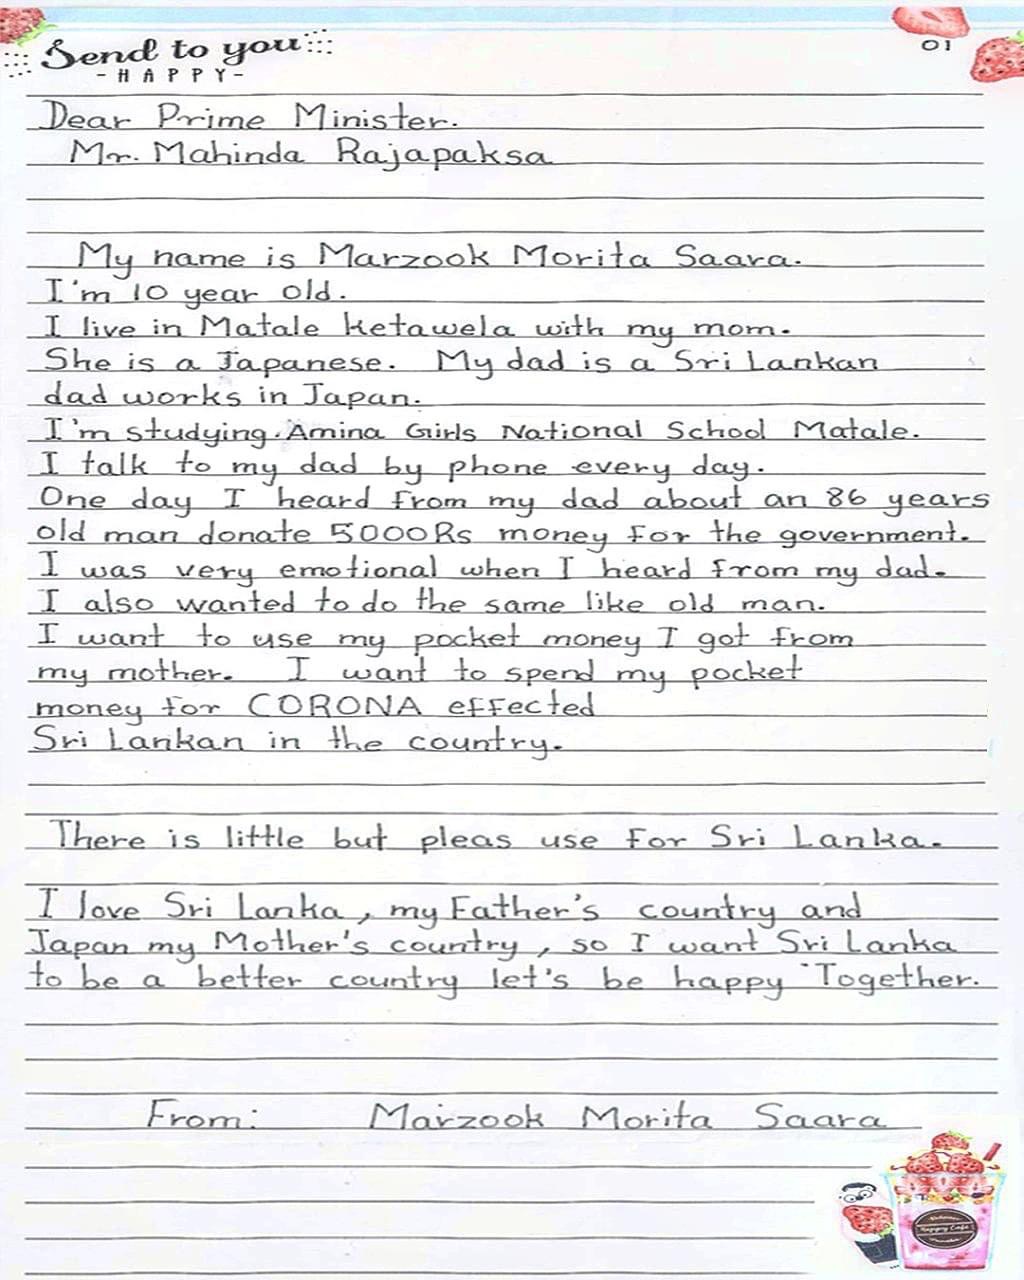 Send to you
- HAPPY -
01
Dear Prime Minister.
Mr. Mahinda Rajapaksa
My name is Marzook Morita Saara.
I'm 10 year old.
I live in Matale ketawela with my mom.
She is a Japanese. My dad is a Sri Lankan
dad works in Japan.
I'm studying. Amina Girls National School Matale.
I talk to my dad by phone every day.
One day I heard from my dad about an 86 years
old man donate 5000Rs money for the government.
I was very emotional when I heard from my dad.
I also wanted to do the same like old man.
I want to use my pocket money I got from
my mother. I want to spend my pocket
money for CORONA effected
Sri Lankan in the country.
There is little but pleas use for Sri Lanka.
I love Sri Lanka, my Father's country and
Japan my Mother's country, so I want Sri Lanka
to be a better country let's be happy Together.
From: Marzook Morita Saara
Happy Cafe